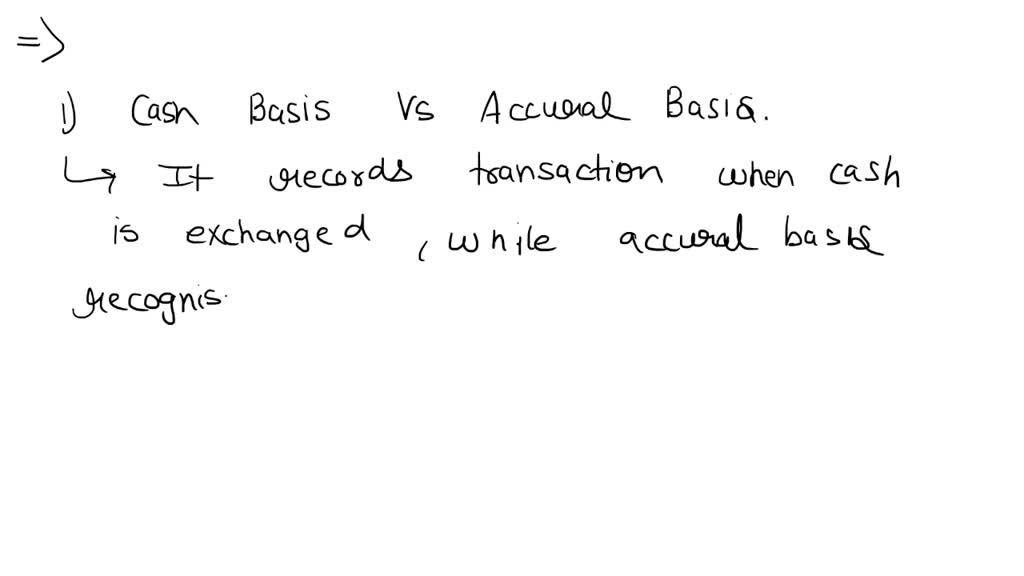 =>
1) Cash Basis Vs Accural Basis.
↳ It records transaction when cash
is exchanged, while accural basis
recognis